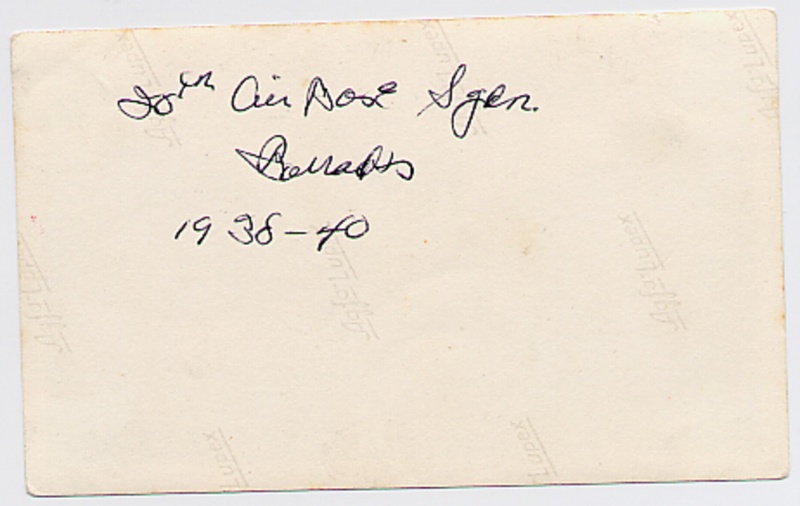 20th Air Base Sqdn.
Barracks
1938-40
Agfa Lupex
Agfa Lupex
Lupex
Agfa Lupex
Agfa Lupex
Agfa Lup
Agfa Lupex
Lupex
Lupex